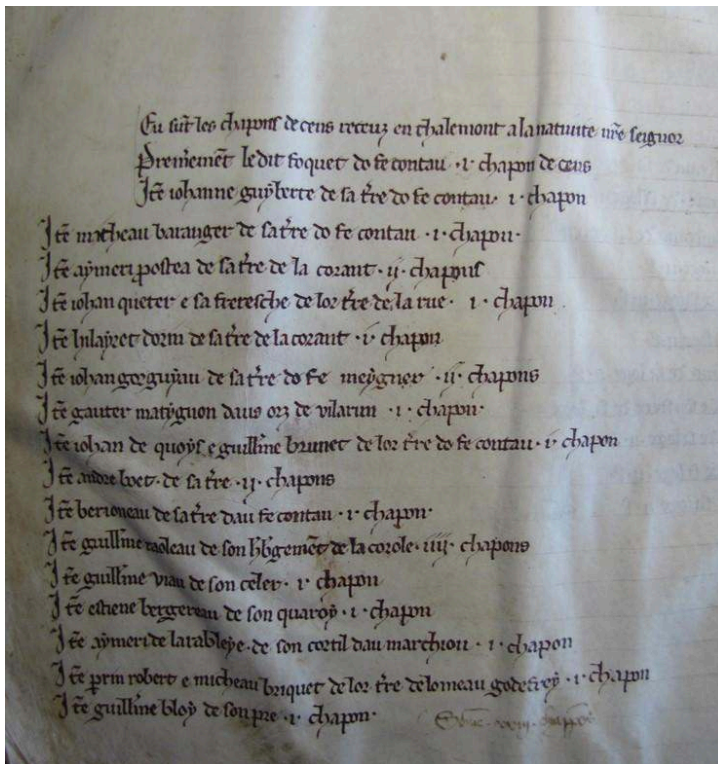 Ce sūt les chapons de cens receuz en chalemont a la natiuite nr̄e seignor
Premeremēt le dit foquet do fe contau · i · chapon de cens
Itē iohanne guyberte de sa tr̄re do fe contau · i · chapon
Itē macheau baranger de sa tr̄re do fe contau · i · chapon ·
Itē aymeri postea de sa tr̄re de la corant · ii · chapons
Itē iohan queter e sa freresche de lor tr̄re de la rue · i · chapon
Itē hylayret dorin de sa tr̄re de la corant · i · chapon
Itē iohan gorguyau de sa tr̄re do fe meygner · ii · chapons
Itē gauter matyguon daus orz de vilarun · i · chapon ·
Itē iohan de quoys e guillm̄e brunet de lor tr̄re do fe contau · i · chapon
Itē andre boet · de sa tr̄re · ii · chapons
Itē berioneau de sa tr̄re dau fe contau · i · chapon ·
Itē guillm̄e raoleau de son hb̄gemēt de la corole · iiii · chapons
Itē guillm̄e viau de son celer · i · chapon
Itē estiene bergereau de son quaroy · i · chapon
Itē aymeri de larableye · de son cortil dau marchiou · i · chapon
Itē perrin robert e micheau briquet de lor tr̄re de lomeau godefrey · i · chapon
Itē guillm̄e bloy de son pre · i · chapon ·